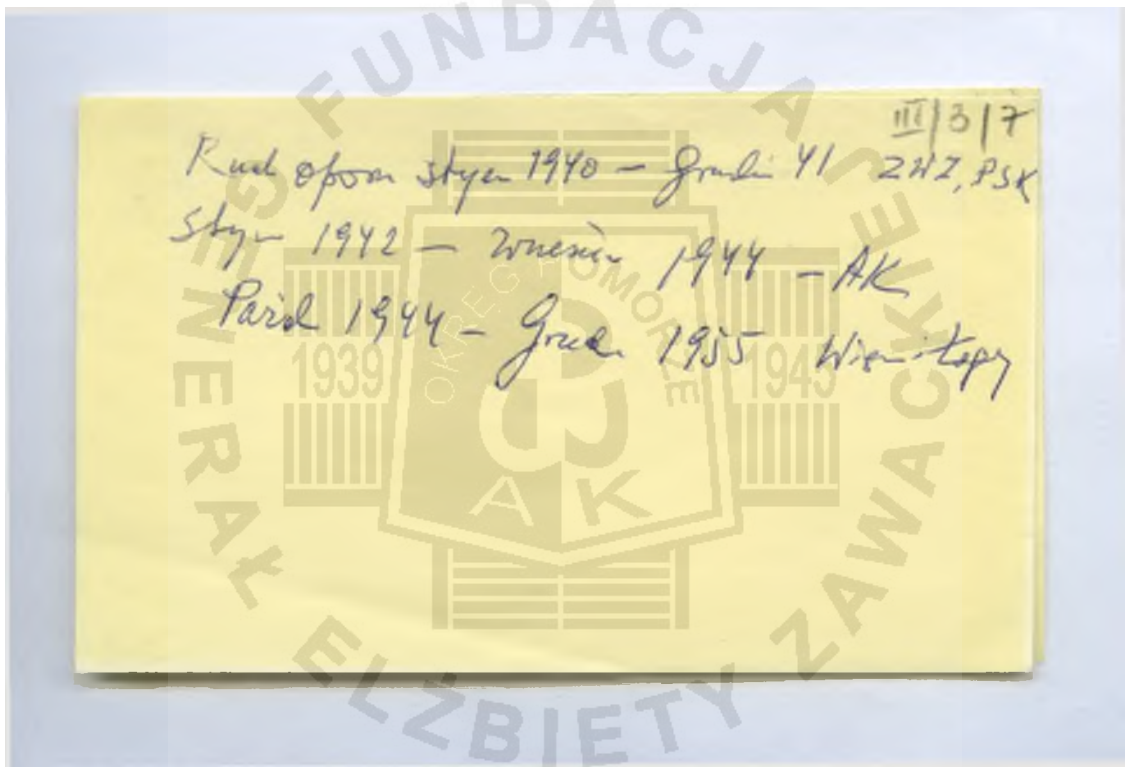 III/3/7
Ruch oporu stycz 1940 – Grudz 41 ZWZ, PSK
Stycz 1942 – Wrzesień 1944 – AK
Paźd 1944 – Grudz 1955 Więź i Łagry
FUNDACJA
GENERAŁ ELŻBIETY ZAWACKIEJ
OKRĘG POMORZE
1939
1945
AK